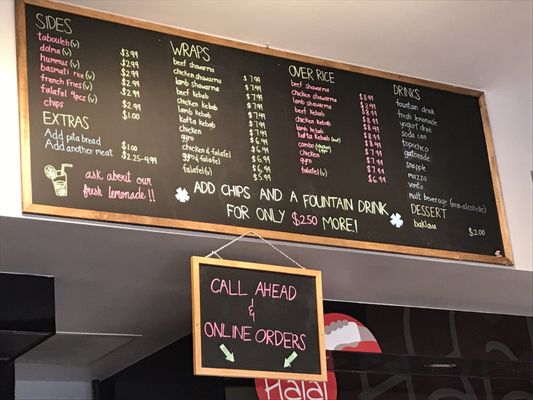 SIDES
tabouleh (v) $3.99
dolma (v) $2.99
hummus (v) $2.99
basmati rice (v) $2.99
french fries (v) $2.99
falafel 4pcs (v) $2.99
chips $1.00
EXTRAS
Add pita bread $1.00
Add another meat $2.25-4.99
ask about our
fresh lemonade!!
WRAPS
beef shawarma $7.99
chicken shawarma $7.99
lamb shawarma $7.99
beef kebab $7.99
chicken kebab $7.99
lamb kebab $7.99
kafta kebab
chicken
gyro
chicken & falafel
gyro & falafel
falafel (v) $5.99
OVER RICE
beef shawarma $8.99
chicken shawarma $8.99
lamb shawarma $8.99
beef kebab $8.99
chicken kebab $8.99
lamb kebab $8.99
kafta kebab
combo
chicken $7.99
gyro $7.99
falafel (v) $6.99
DRINKS
fountain drink
fresh lemonade
yogurt drink
soda can
topochico
gatorade
snapple
mazza
vimto
malt beverage (non-alcoholic)
DESSERT
baklava $2.00
ADD CHIPS AND A FOUNTAIN DRINK
FOR ONLY $2.50 MORE!
CALL AHEAD
&
ONLINE ORDERS
Halal